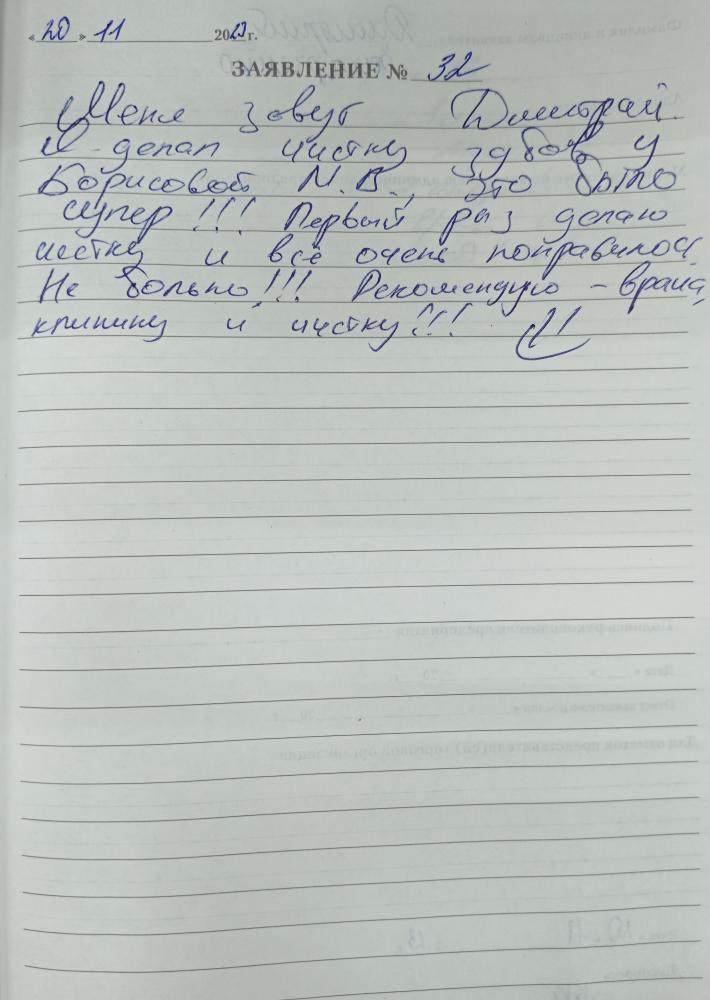 «20» 11 2023 г.
ЗАЯВЛЕНИЕ № 32
Меня зовут Дмитрий.
Я делал чистку зубов у
Борисовой М.В., это было
супер!!! Первый раз делаю
чистку и всё очень понравилось.
Не больно!!! Рекомендую - врача,
клинику и чистку!!!